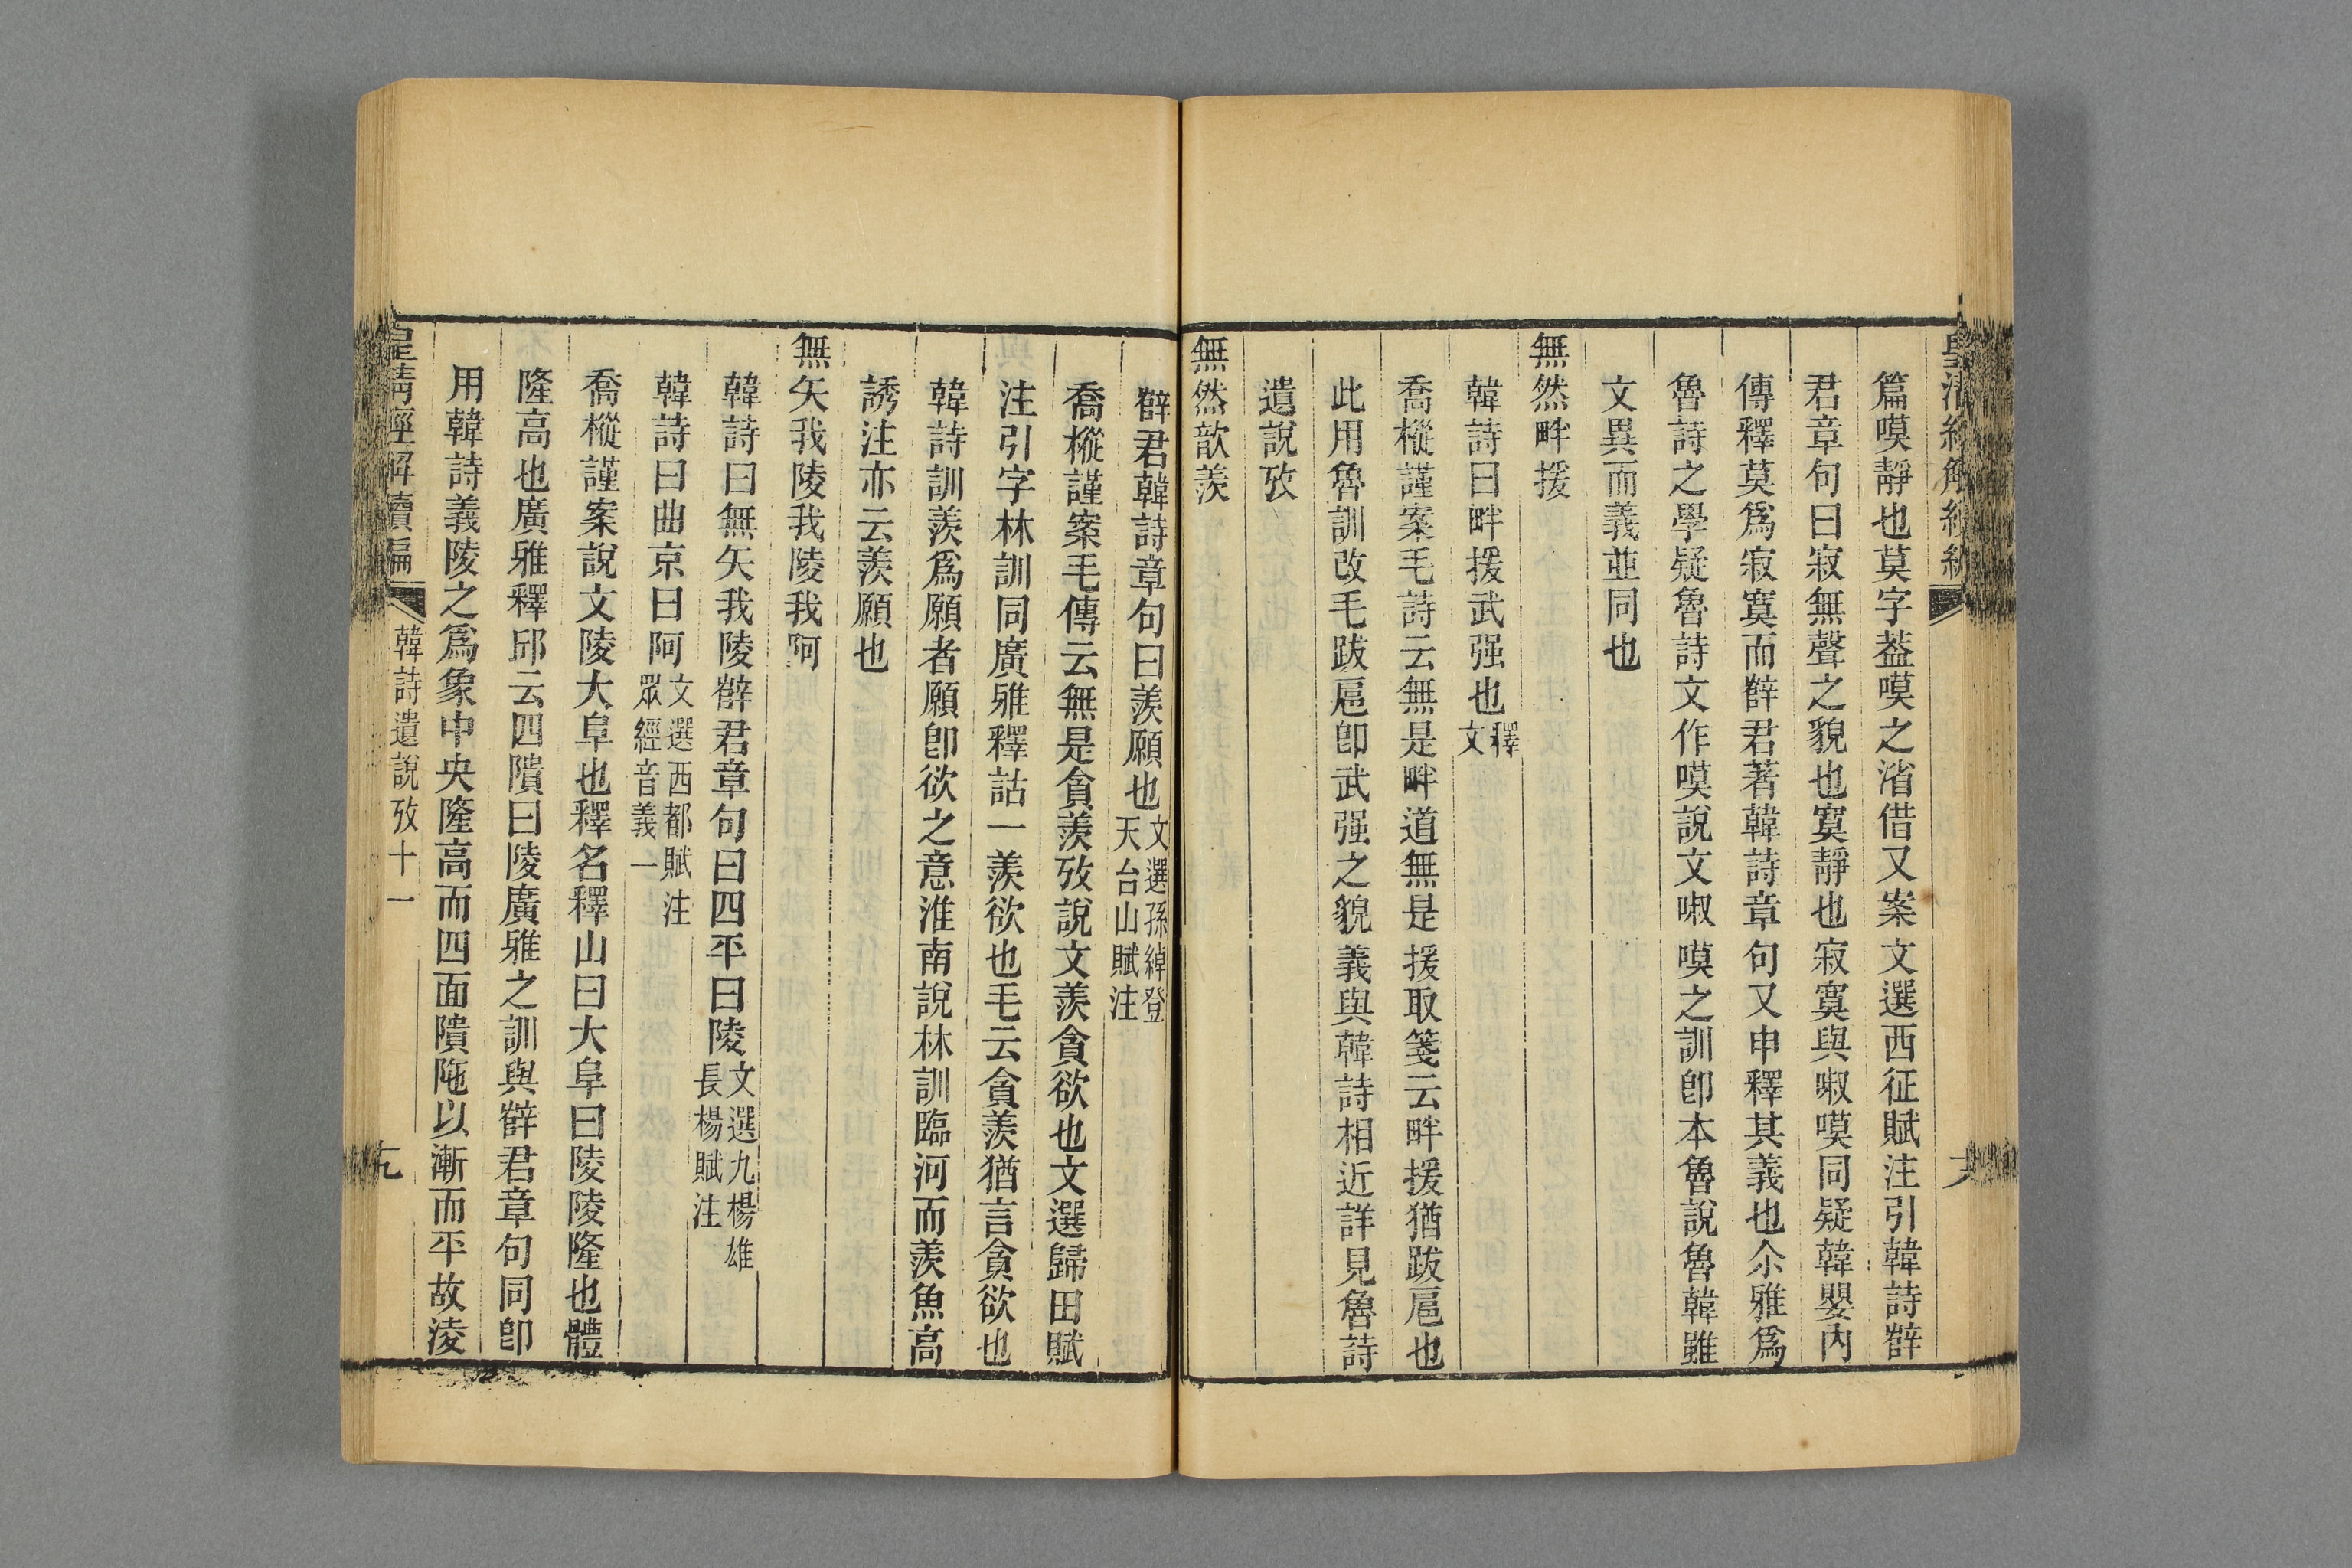 篇嗼靜也莫字葢嗼之渻借又案文選西征賦注引韓詩辥
君章句曰寂無聲之貌也寞靜也寂寞與㖡嗼同疑韓嬰內
傳釋莫爲寂寞而辥君著韓詩章句又申釋其義也尒雅爲
魯詩之學疑魯詩文作嗼說文㖡嗼之訓卽本魯說魯韓雖
文異而義並同也
無然畔援
韓詩曰畔援武强也釋文
喬樅謹案毛詩云無是畔道無是援取箋云畔援猶跋扈也
此用魯訓改毛跋扈卽武强之貌義與韓詩相近詳見魯詩
遺說攷
無然歆羨
辥君韓詩章句曰羨願也文選孫綽登天台山賦注
喬樅謹案毛傳云無是貪羨攷說文羨貪欲也文選歸田賦
注引字林訓同廣雅釋詁一羨欲也毛云貪羨猶言貪欲也
韓詩訓羨爲願者願卽欲之意淮南說林訓臨河而羨魚高
誘注亦云羨願也
無矢我陵我陵我阿
韓詩曰無矢我陵辥君章句曰四平曰陵文選九楊雄長楊賦注
韓詩曰曲京曰阿文選西都賦注眾經音義一
喬樅謹案說文陵大阜也釋名釋山曰大阜曰陵陵隆也體
隆高也廣雅釋邱云四隤曰陵廣雅之訓與辥君章句同卽
用韓詩義陵之爲象中央隆高而四面隤陁以漸而平故淩
皇清經解續編 韓詩遺說攷十一